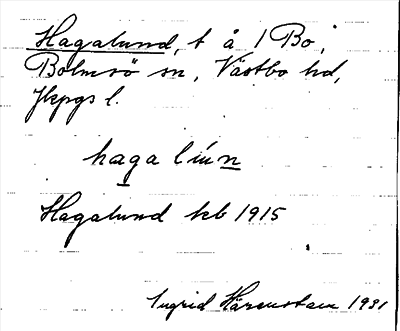 Hagalund, t å 1 Bo,
Bolmsö sn, Västbo hd,
Jkpgs l.
haga lún
Hagalund kb 1915
Ingrid 1931